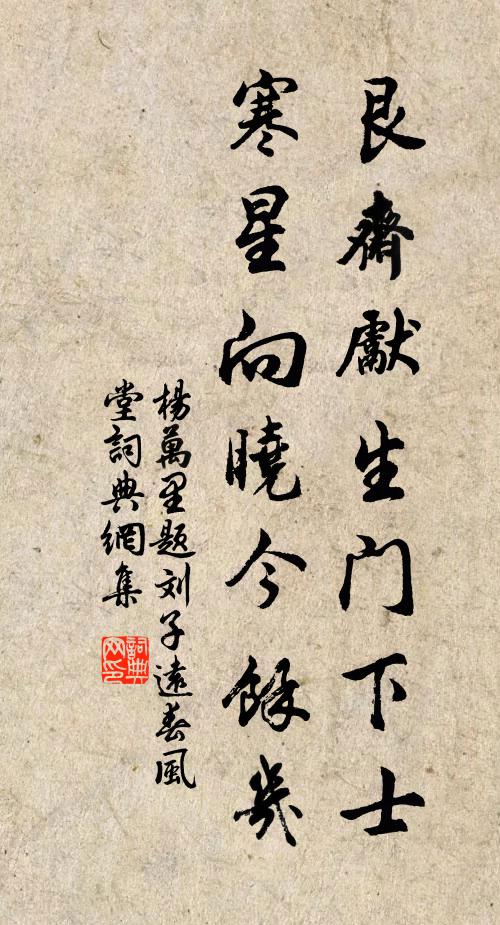 艮齋獻生门下士
寒星向曉今餘幾
楊萬里題刘子遠春風
堂詞典網集
詞典网印